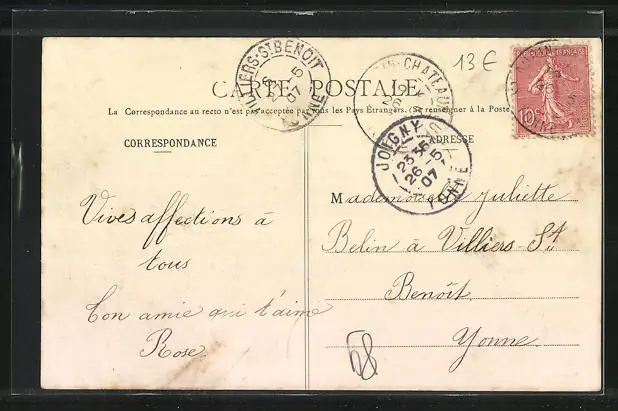 13€
CARTE POSTALE
La Correspondance au recto n'est pas acceptée par tous les Pays Étrangers. (Se renseigner à la Poste
CORRESPONDANCE
ADRESSE
VILLIERS-ST BENOIT
26 5 07
YONNE
CHATEAU
JOIGNY
23 35
26 -5
07
YONNE
10
Mademoiselle Juliette
Belin à Villiers-St
Benoît
Yonne
Vives affections à
tous
Ton amie qui t'aime
Rose.